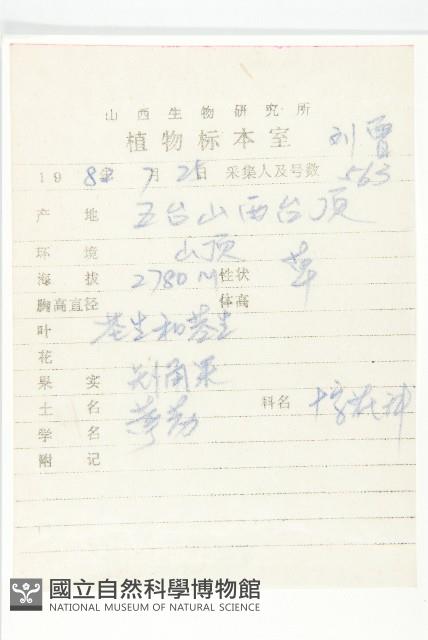 山西生物研究所
植物标本室
刘 曾
198 年7月25日 采集人及号数 563
产 地 五台山西台顶
环 境 山顶
海 拔 2780m 性状 草
胸高直径 体高
叶 基生和茎生
花
果 实 角果
土 名
科名 十字花科
学 名
附 记
國立自然科學博物館
NATIONAL MUSEUM OF NATURAL SCIENCE